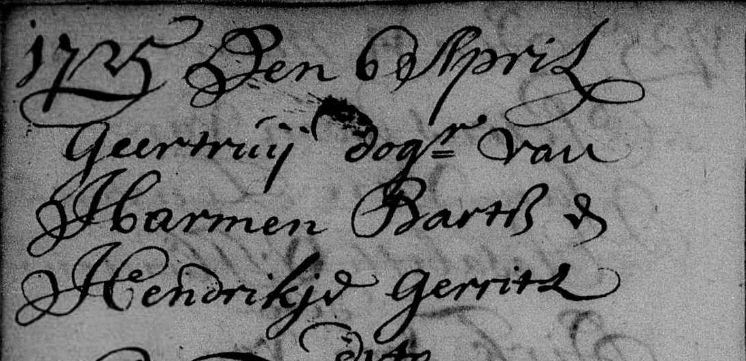 1725 Den 6 April
Geertruij dogr van
Harmen Bartß &
Hendrikje Gerrits